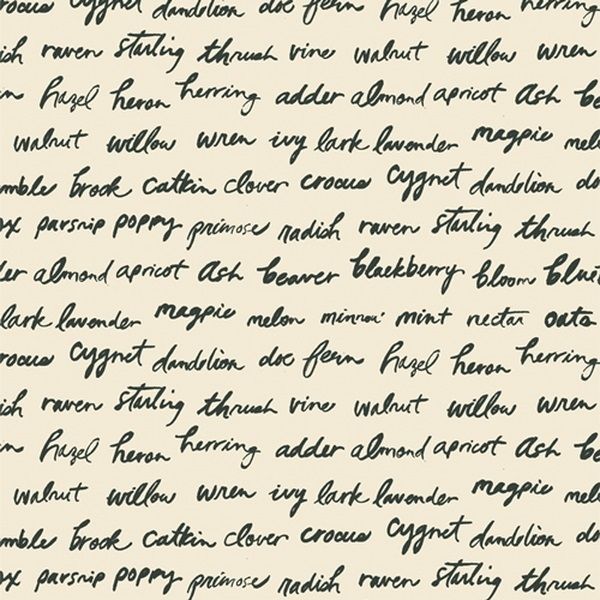 crocus cygnet dandelion doe fern hazel heron herring
ish raven starling thrush vine walnut willow wren
rn hazel heron herring adder almond apricot ash be
walnut willow wren ivy lark lavender magpie mel
amble brook catkin clover crocus cygnet dandelion do
ox parsnip poppy primose radish raven starling thrush
der almond apricot ash beaver blackberry bloom blue
lark lavender magpie melon minnow mint nectar oats
rocus cygnet dandelion doe fern hazel heron herring
ish raven starling thrush vine walnut willow wren
rn hazel heron herring adder almond apricot ash be
walnut willow wren ivy lark lavender magpie mel
amble brook catkin clover crocus cygnet dandelion do
ox parsnip poppy primose radish raven starling thrush